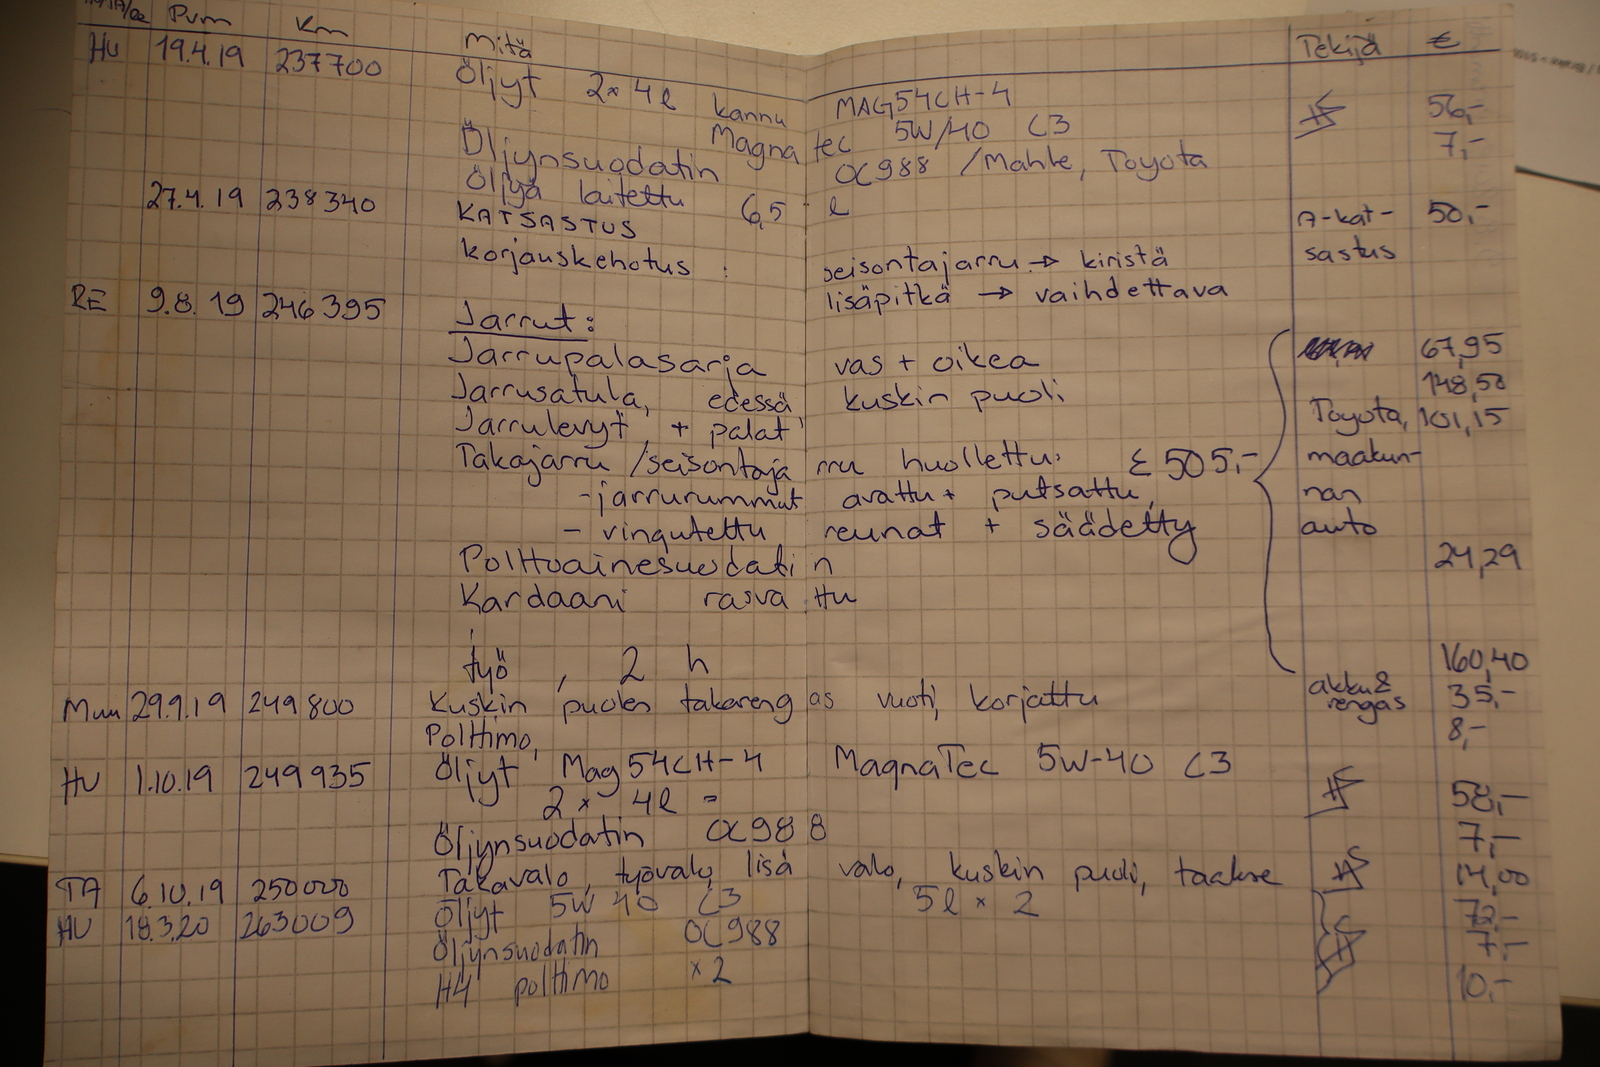 Pvm Km Mitä Tekijä €
HU 19.4.19 237700 Öljyt 2x 4l kannu MAG54CH-4 56,-
Magnatec 5W/40 C3 7,-
Öljynsuodatin OC988 /Mahle, Toyota
Öljyä laitettu 6,5 l
27.4.19 238340 KATSASTUS A-kat- 50,-
korjauskehotus : seisontajarru → kiristä sastus
lisäpitkä → vaihdettava
RE 9.8.19 246395 Jarrut:
Jarrupalasarja vas + oikea 67,95
Jarrusatula, edessä, kuskin puoli 148,50
Jarrulevyt + palat Toyota, 101,15
Takajarru /seisontajarru huollettu: Σ 505,- maakun-
-jarrurummut avattu + putsattu, nan
- vingutettu reunat + säädetty auto
Polttoainesuodatin 24,29
Kardaani rasvattu
työ, 2 h 160,40
Muu 29.9.19 249800 Kuskin puolen takarengas vuoti, korjattu akku& rengas 35,-
Polttimo, 8,-
HU 1.10.19 249935 Öljyt Mag54CH-4 MagnaTec 5W-40 C3
2 x 4l = 58,-
Öljynsuodatin OC988 7,-
TA 6.10.19 250000 Takavalo, työvalo, lisävalo, kuskin puoli, taakse 14,00
HU 18.3.20 263009 Öljyt 5W40 C3 5l x 2 72,-
Öljynsuodatin OC988 7,-
H4 polttimo x2 10,-